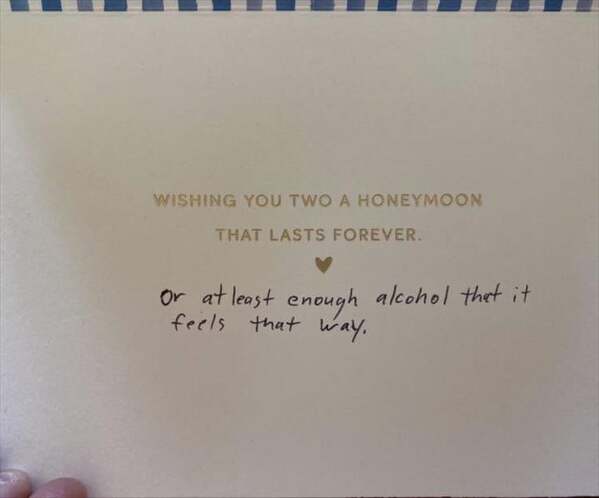 WISHING YOU TWO A HONEYMOON
THAT LASTS FOREVER.
Or atleast enough alcohol that it
feels that way.